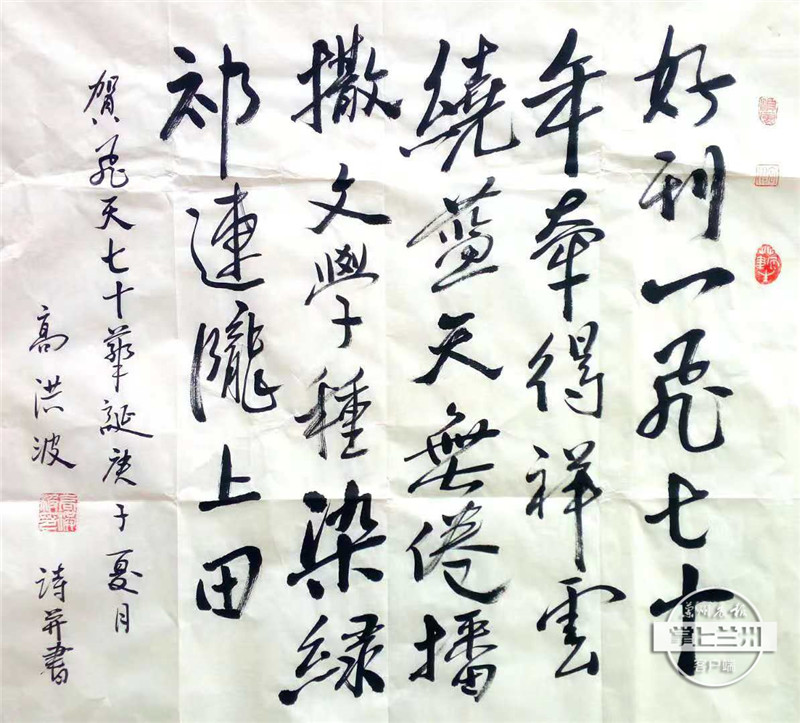 好刊一飛七十
年牽得祥雲
繞藍天無倦播
撒文學種染綠
祁連隴上田
賀飛天七十華誕庚子夏月
高洪波
詩并書
掌上兰州
客户端